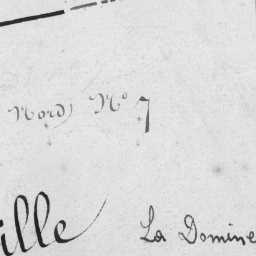 Nord Nº 7
ille La Domine